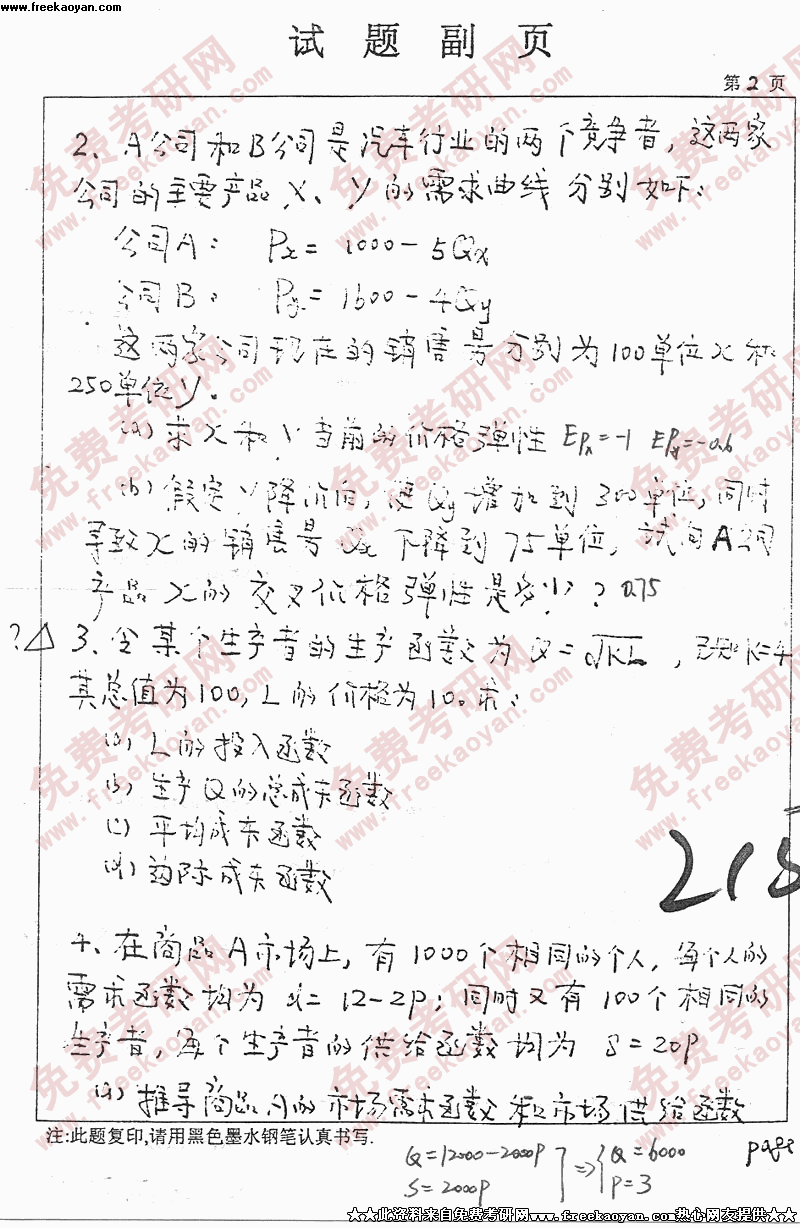 www.freekaoyan.com
试 题 副 页
第 2 页
2、A公司和B公司是汽车行业的两个竞争者,这两家
公司的主要产品X、Y的需求曲线分别如下:
公司A: Px = 1000 - 5Qx
公司B: Py = 1600 - 4Qy
这两家公司现在的销售量分别为100单位X和
250单位Y。
(a) 求X和Y当前的价格弹性 EPx=-1 EPy=-0.6
(b) 假定Y降价后,使Qy增加到300单位,同时
导致X的销售量Qx下降到75单位,试问A公司
产品X的交叉价格弹性是多少? 0.75
?△ 3、令某个生产者的生产函数为 Q = √KL ,已知K=4
其总值为100,L的价格为10。求:
(a) L的投入函数
(b) 生产Q的总成本函数
(c) 平均成本函数
(d) 边际成本函数
215
4、在商品A市场上,有1000个相同的个人,每个人的
需求函数均为 d = 12-2P;同时又有100个相同的
生产者,每个生产者的供给函数均为 S = 20P
(a) 推导商品A的市场需求函数和市场供给函数
注:此题复印,请用黑色墨水钢笔认真书写.
Q=12000-2000P ] ⇒ { Q=6000
S=2000P P=3
page
★★此资料来自免费考研网www.freekaoyan.com热心网友提供★★
免费考研网
www.freekaoyan.com